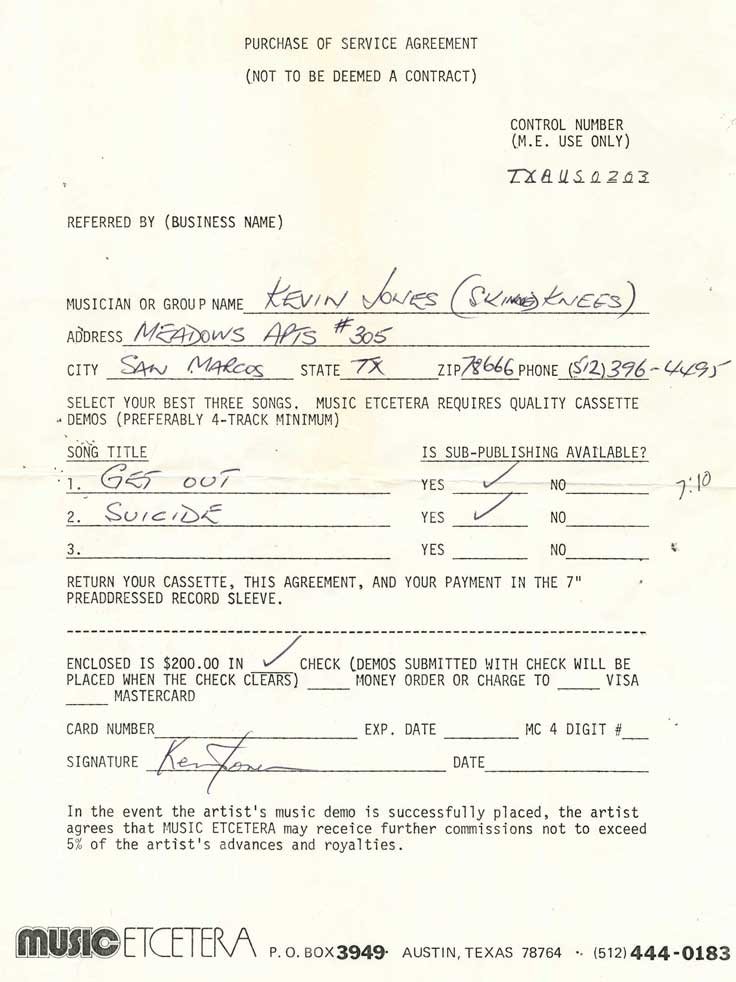 PURCHASE OF SERVICE AGREEMENT
(NOT TO BE DEEMED A CONTRACT)
CONTROL NUMBER
(M.E. USE ONLY)
TXAUS0203
REFERRED BY (BUSINESS NAME)
MUSICIAN OR GROUP NAME KEVIN JONES (SKINNED KNEES)
ADDRESS MEADOWS APTS #305
CITY SAN MARCOS STATE TX ZIP 78666 PHONE (512)396-4495
SELECT YOUR BEST THREE SONGS. MUSIC ETCETERA REQUIRES QUALITY CASSETTE
DEMOS (PREFERABLY 4-TRACK MINIMUM)
SONG TITLE IS SUB-PUBLISHING AVAILABLE?
1. GET OUT YES ✓ NO 7:10
2. SUICIDE YES ✓ NO
3. YES NO
RETURN YOUR CASSETTE, THIS AGREEMENT, AND YOUR PAYMENT IN THE 7"
PREADDRESSED RECORD SLEEVE.
ENCLOSED IS $200.00 IN ✓ CHECK (DEMOS SUBMITTED WITH CHECK WILL BE
PLACED WHEN THE CHECK CLEARS) MONEY ORDER OR CHARGE TO VISA
MASTERCARD
CARD NUMBER EXP. DATE MC 4 DIGIT #
SIGNATURE Kevin Jones DATE
In the event the artist's music demo is successfully placed, the artist
agrees that MUSIC ETCETERA may receice further commissions not to exceed
5% of the artist's advances and royalties.
MUSIC ETCETERA P.O. BOX 3949 · AUSTIN, TEXAS 78764 · (512) 444-0183